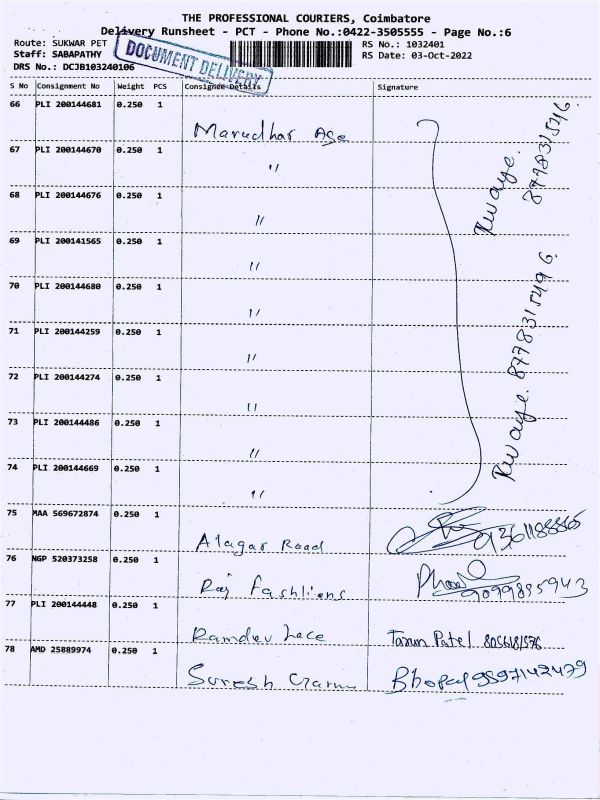 THE PROFESSIONAL COURIERS, Coimbatore
Delivery Runsheet - PCT - Phone No.:0422-3505555 - Page No.:6
Route: SUKWAR PET
RS No.: 1032401
Staff: SABAPATHY
RS Date: 03-Oct-2022
DRS No.: DCJB103240106
DOCUMENT DELIVERY
S No Consignment No Weight PCS Consignee Details Signature
66 PLI 200144681 0.250 1
Marudhar
67 PLI 200144670 0.250 1
"
68 PLI 200144676 0.250 1
"
69 PLI 200141565 0.250 1
"
70 PLI 200144680 0.250 1
"
71 PLI 200144259 0.250 1
"
72 PLI 200144274 0.250 1
"
73 PLI 200144486 0.250 1
"
74 PLI 200144669 0.250 1
"
75 MAA 569672874 0.250 1
Alagar Raad
76 NGP 520373258 0.250 1
Raj Fashlions 9099895943
77 PLI 200144448 0.250 1
Ramdev Lace Tarun Patel
78 AMD 25889974 0.250 1
Suresh